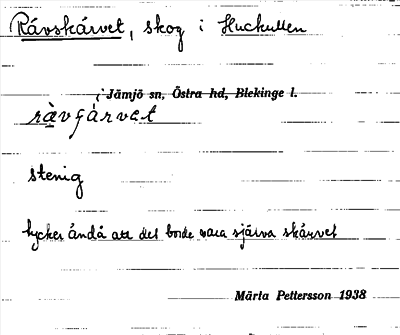 Rävskärvet, skog i Huckullen
Jämjö sn, Östra hd, Blekinge l.
rävʃärvet
stenig
tycker ändå att det borde vara själva skärvet
Märta Pettersson 1938